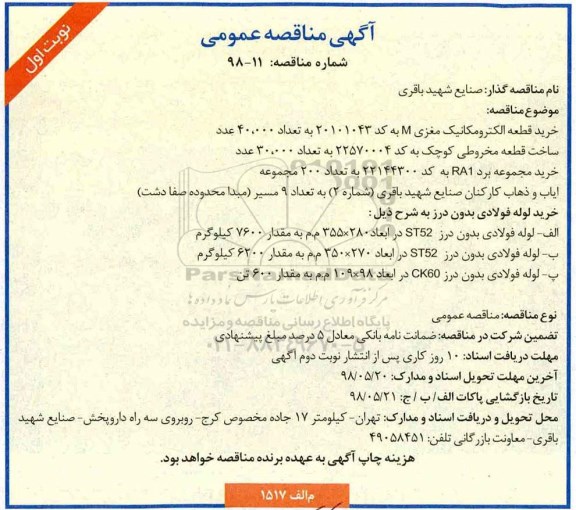 نوبت اول
آگهی مناقصه عمومی
شماره مناقصه: ۱۱-۹۸
نام مناقصه گذار: صنایع شهید باقری
موضوع مناقصه:
خرید قطعه الکترومکانیک مغزی M به کد ۲۰۱۰۱۰۴۳ به تعداد ۴۰,۰۰۰ عدد
ساخت قطعه مخروطی کوچک به کد ۲۲۵۷۰۰۰۴ به تعداد ۳۰,۰۰۰ عدد
خرید مجموعه برد RA1 به کد ۲۲۱۴۴۳۰۰ به تعداد ۲۰۰ مجموعه
ایاب و ذهاب کارکنان صنایع شهید باقری (شماره ۲) به تعداد ۹ مسیر (مبدا محدوده صفا دشت)
خرید لوله فولادی بدون درز به شرح ذیل:
الف- لوله فولادی بدون درز ST52 در ابعاد ۲۸۰×۳۵۵ م.م به مقدار ۷۶۰۰ کیلوگرم
ب- لوله فولادی بدون درز ST52 در ابعاد ۲۷۰×۳۵۰ م.م به مقدار ۶۲۰۰ کیلوگرم
پ- لوله فولادی بدون درز CK60 در ابعاد ۹۸×۱۰۹ م.م به مقدار ۶۰۰ تن
ParsNamadData
مرکز فرآوری اطلاعات پارس نماد داده‌ها
نوع مناقصه: مناقصه عمومی
پایگاه اطلاع رسانی مناقصه و مزایده
تضمین شرکت در مناقصه: ضمانت نامه بانکی معادل ۵ درصد مبلغ پیشنهادی
۰۲۱-۸۸۳۴۹۶۷۰-۵
مهلت دریافت اسناد: ۱۰ روز کاری پس از انتشار نوبت دوم آگهی
آخرین مهلت تحویل اسناد و مدارک: ۹۸/۰۵/۲۰
تاریخ بازگشایی پاکات الف / ب / ج: ۹۸/۰۵/۲۱
محل تحویل و دریافت اسناد و مدارک: تهران- کیلومتر ۱۷ جاده مخصوص کرج- روبروی سه راه داروپخش- صنایع شهید
باقری- معاونت بازرگانی تلفن: ۴۹۰۵۸۴۵۱
هزینه چاپ آگهی به عهده برنده مناقصه خواهد بود.
م الف ۱۵۱۷